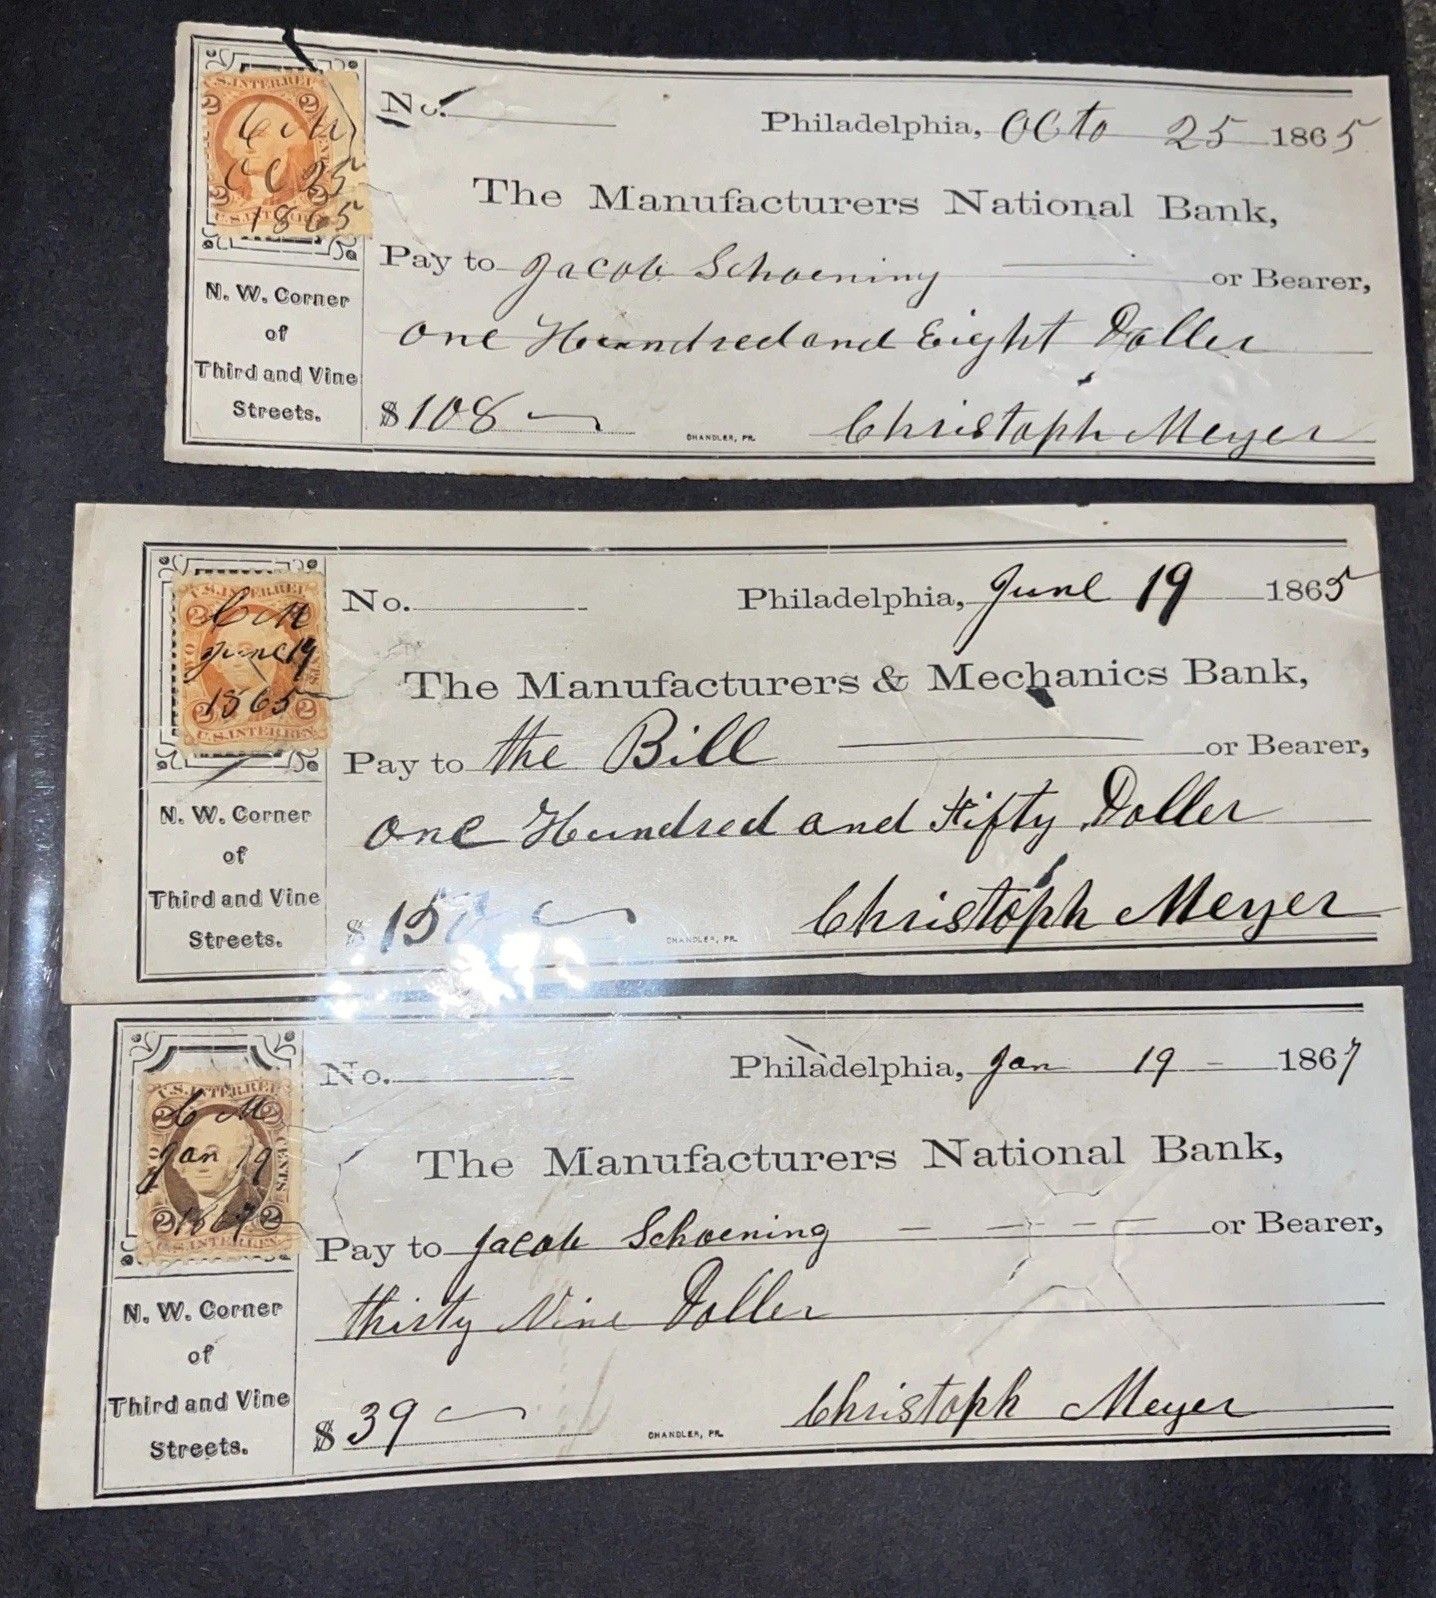 U.S.INTER.REV
2 2
C M
OC 25
1865
2 2
U.S.INTER.REV.
N. W. Corner
of
Third and Vine
Streets.
No.
Philadelphia, Octo 25 1865
The Manufacturers National Bank,
Pay to Jacob Schoening or Bearer,
one Hundred and Eight Doller
$ 108
CHANDLER, PR.
Christoph Meyer
U.S.INTER.REV
2 2
C M
TWO June 19 CENTS
1865
2 2
U.S.INTER.REV.
N. W. Corner
of
Third and Vine
Streets.
No.
Philadelphia, June 19 1865
The Manufacturers & Mechanics Bank,
Pay to the Bill or Bearer,
one Hundred and Fifty Doller
$ 150
CHANDLER, PR.
Christoph Meyer
U.S.INTER.REV
2 2
C M
TWO Jan 19 CENTS
1867
2 2
U.S.INTER.REV.
N. W. Corner
of
Third and Vine
Streets.
No.
Philadelphia, Jan 19 - 1867
The Manufacturers National Bank,
Pay to Jacob Schoening or Bearer,
thirty Nine Doller
$ 39
CHANDLER, PR.
Christoph Meyer